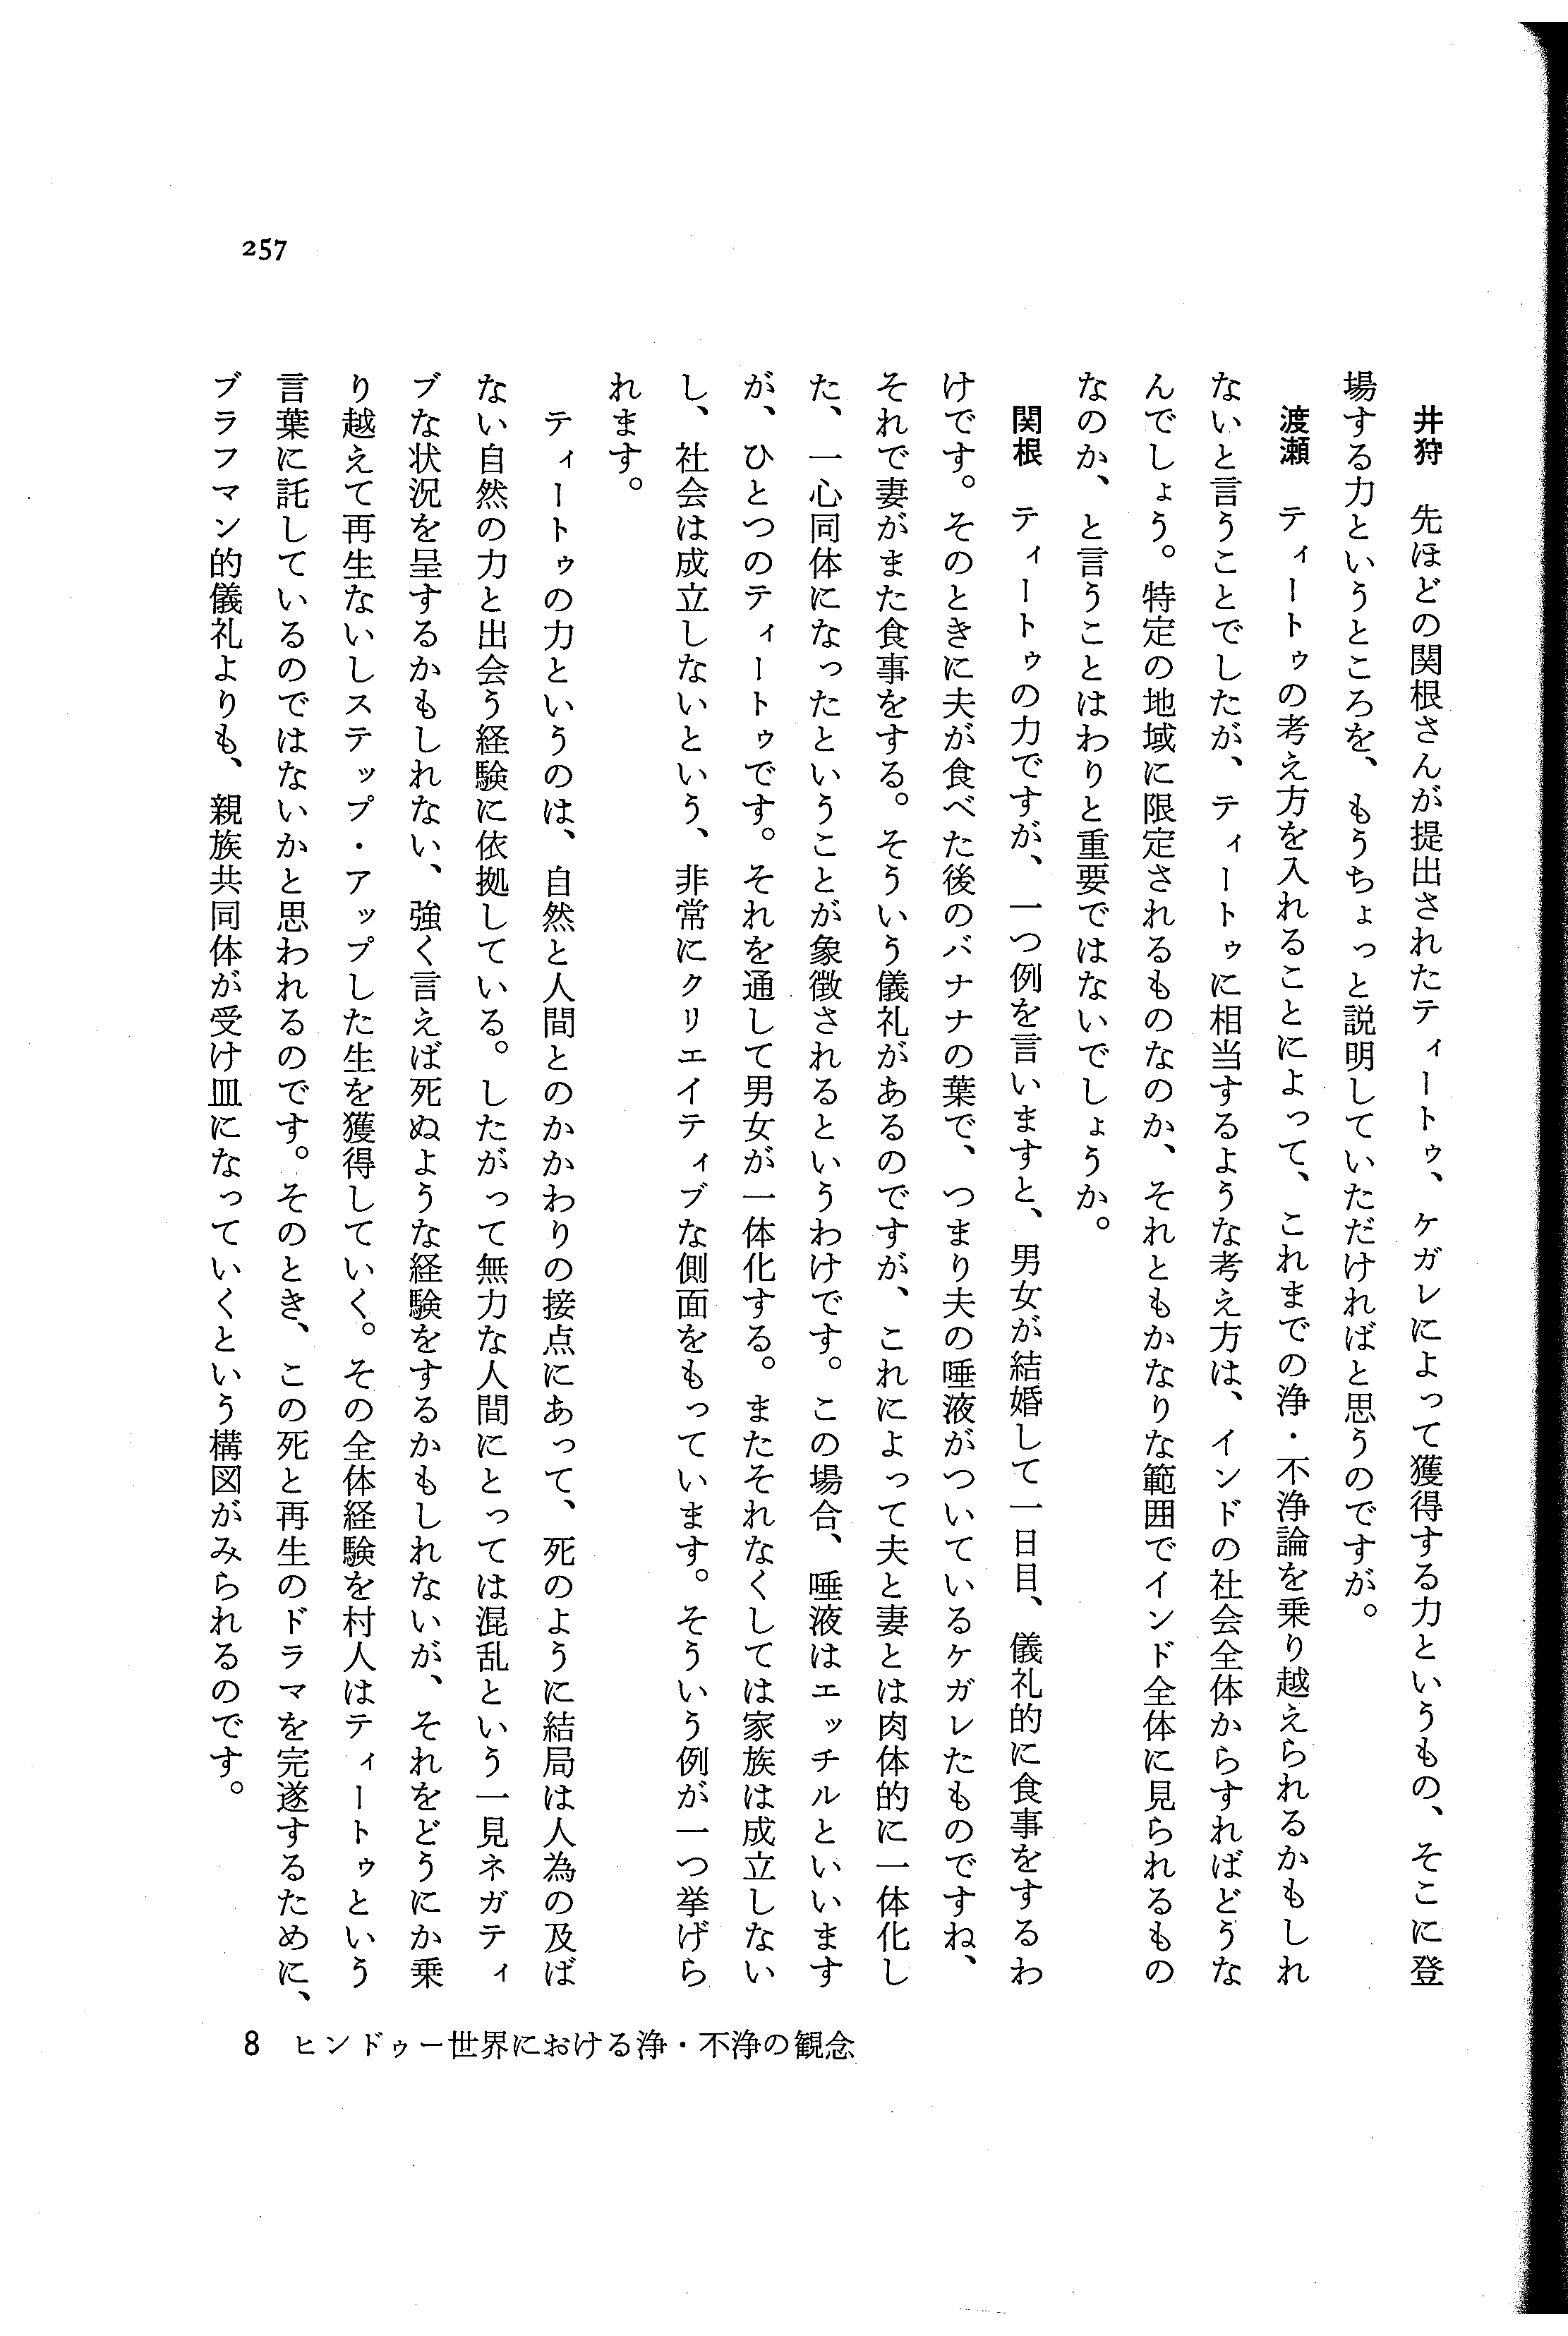 257
井狩　先ほどの関根さんが提出されたティートゥ、ケガレによって獲得する力というもの、そこに登
場する力というところを、もうちょっと説明していただければと思うのですが。
渡瀬　ティートゥの考え方を入れることによって、これまでの浄・不浄論を乗り越えられるかもしれ
ないと言うことでしたが、ティートゥに相当するような考え方は、インドの社会全体からすればどうな
んでしょう。特定の地域に限定されるものなのか、それともかなりな範囲でインド全体に見られるもの
なのか、と言うことはわりと重要ではないでしょうか。
関根　ティートゥの力ですが、一つ例を言いますと、男女が結婚して一日目、儀礼的に食事をするわ
けです。そのときに夫が食べた後のバナナの葉で、つまり夫の唾液がついているケガレたものですね、
それで妻がまた食事をする。そういう儀礼があるのですが、これによって夫と妻とは肉体的に一体化し
た、一心同体になったということが象徴されるというわけです。この場合、唾液はエッチルといいます
が、ひとつのティートゥです。それを通して男女が一体化する。またそれなくしては家族は成立しない
し、社会は成立しないという、非常にクリエイティブな側面をもっています。そういう例が一つ挙げら
れます。
ティートゥの力というのは、自然と人間とのかかわりの接点にあって、死のように結局は人為の及ば
ない自然の力と出会う経験に依拠している。したがって無力な人間にとっては混乱という一見ネガティ
ブな状況を呈するかもしれない、強く言えば死ぬような経験をするかもしれないが、それをどうにか乗
り越えて再生ないしステップ・アップした生を獲得していく。その全体経験を村人はティートゥという
言葉に託しているのではないかと思われるのです。そのとき、この死と再生のドラマを完遂するために、
ブラフマン的儀礼よりも、親族共同体が受け皿になっていくという構図がみられるのです。
8　ヒンドゥー世界における浄・不浄の観念